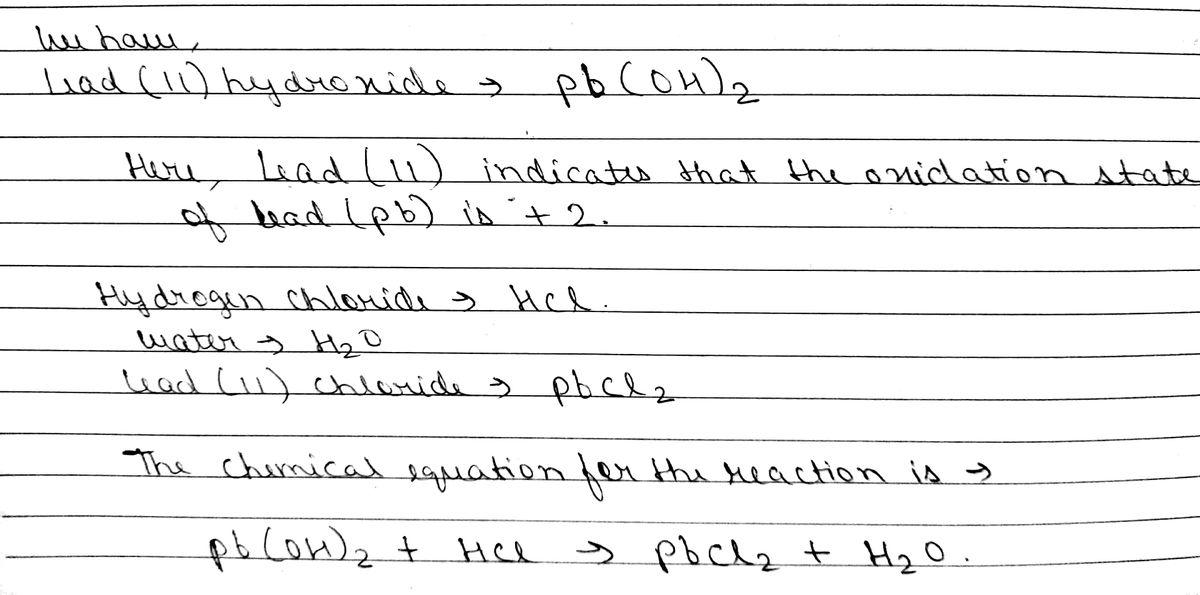 We have,
Lead (11) hydroxide → pb(OH)₂
Here, Lead (11) indicates that the oxidation state
of lead (pb) is +2.
Hydrogen chloride → HCl.
water → H₂O
Lead (11) chloride → pbCl₂
The chemical equation for the reaction is →
pb(OH)₂ + HCl → pbCl₂ + H₂O.